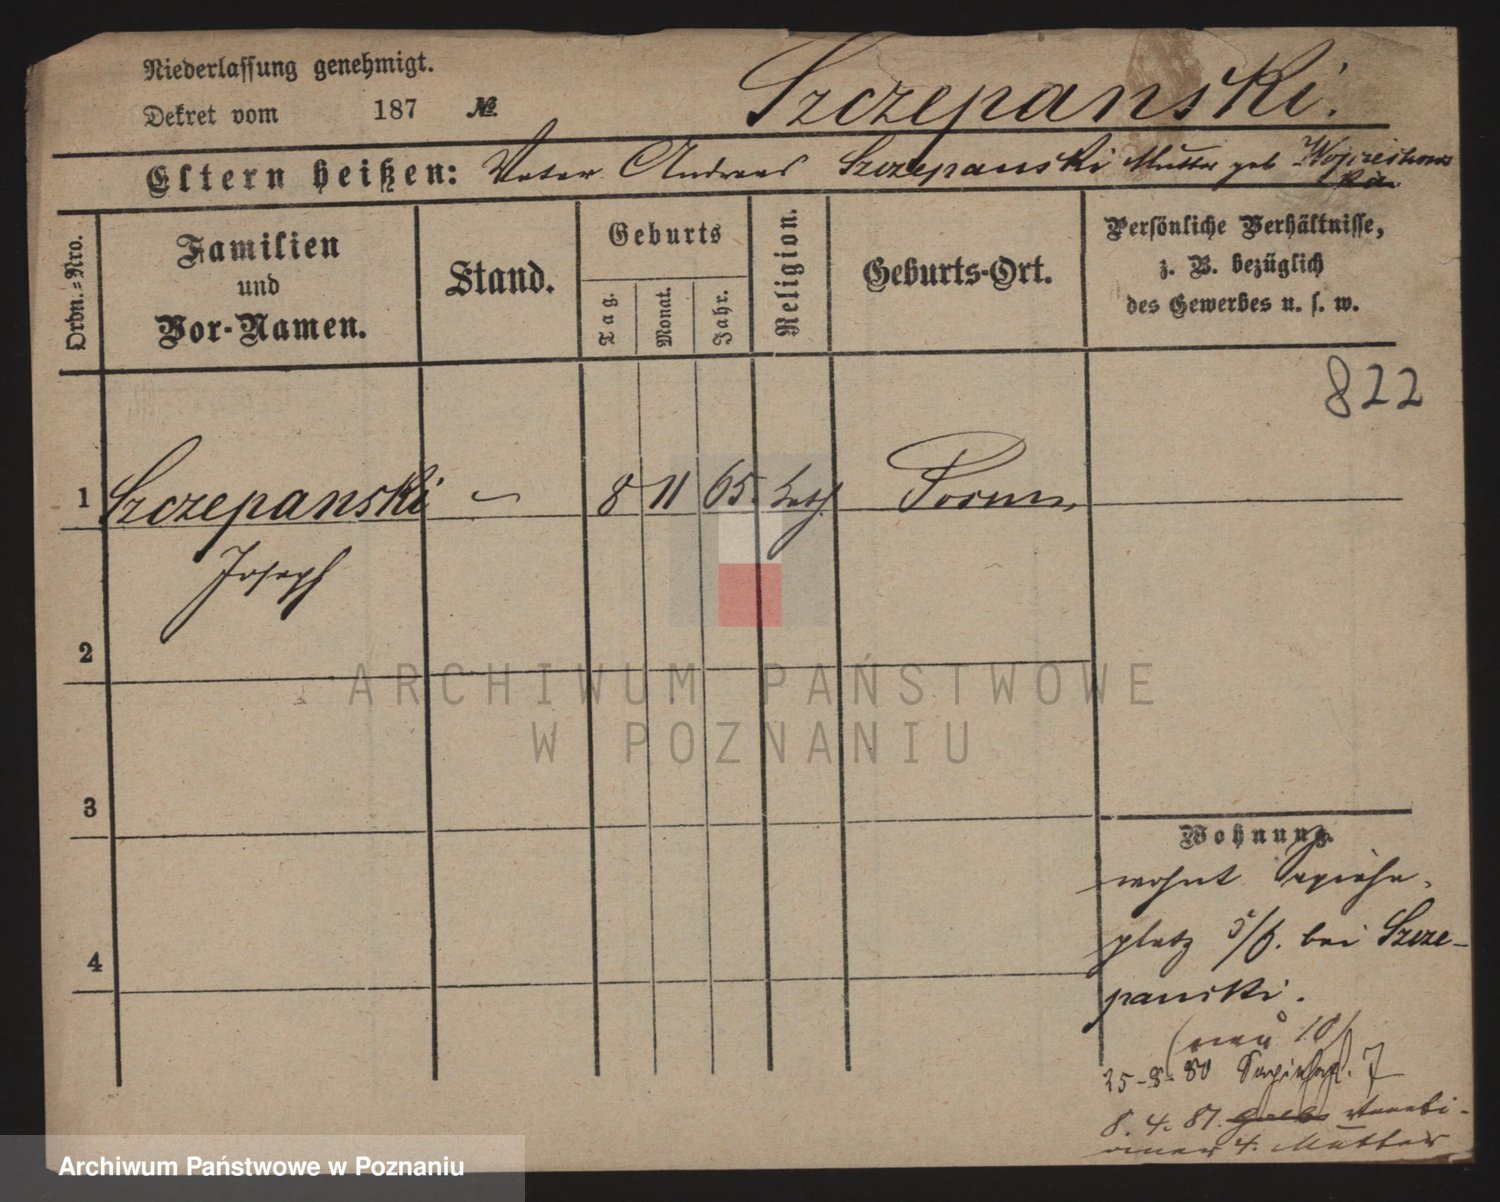 Niederlassung genehmigt.
Dekret vom 187 №.
Szczepanski.
Eltern heißen: Vater Andreas Szczepanski Mutter geb Wojciechows
ka.
Ordn.-Nro.
Familien
und
Vor-Namen.
Stand.
Geburts
Tag.
Monat.
Jahr.
Religion.
Geburts-Ort.
Persönliche Verhältnisse,
z. B. bezüglich
des Gewerbes u. s. w.
822
1 Szczepanski — 8 11 65. kath Posen
Joseph
2
3
4
Wohnung.
wohnt Sapieha-
platz 5/6. bei Szcze-
panski.
(neu 10)
25-8-80 Sapiehapl. 7
8. 4. 81.
4. Mutter
ARCHIWUM PAŃSTWOWE
W POZNANIU
Archiwum Państwowe w Poznaniu